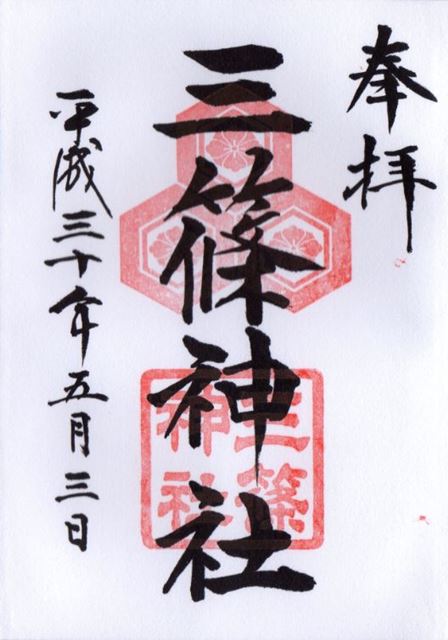 奉拝
三篠神社
三篠
神社
平成三十年五月三日